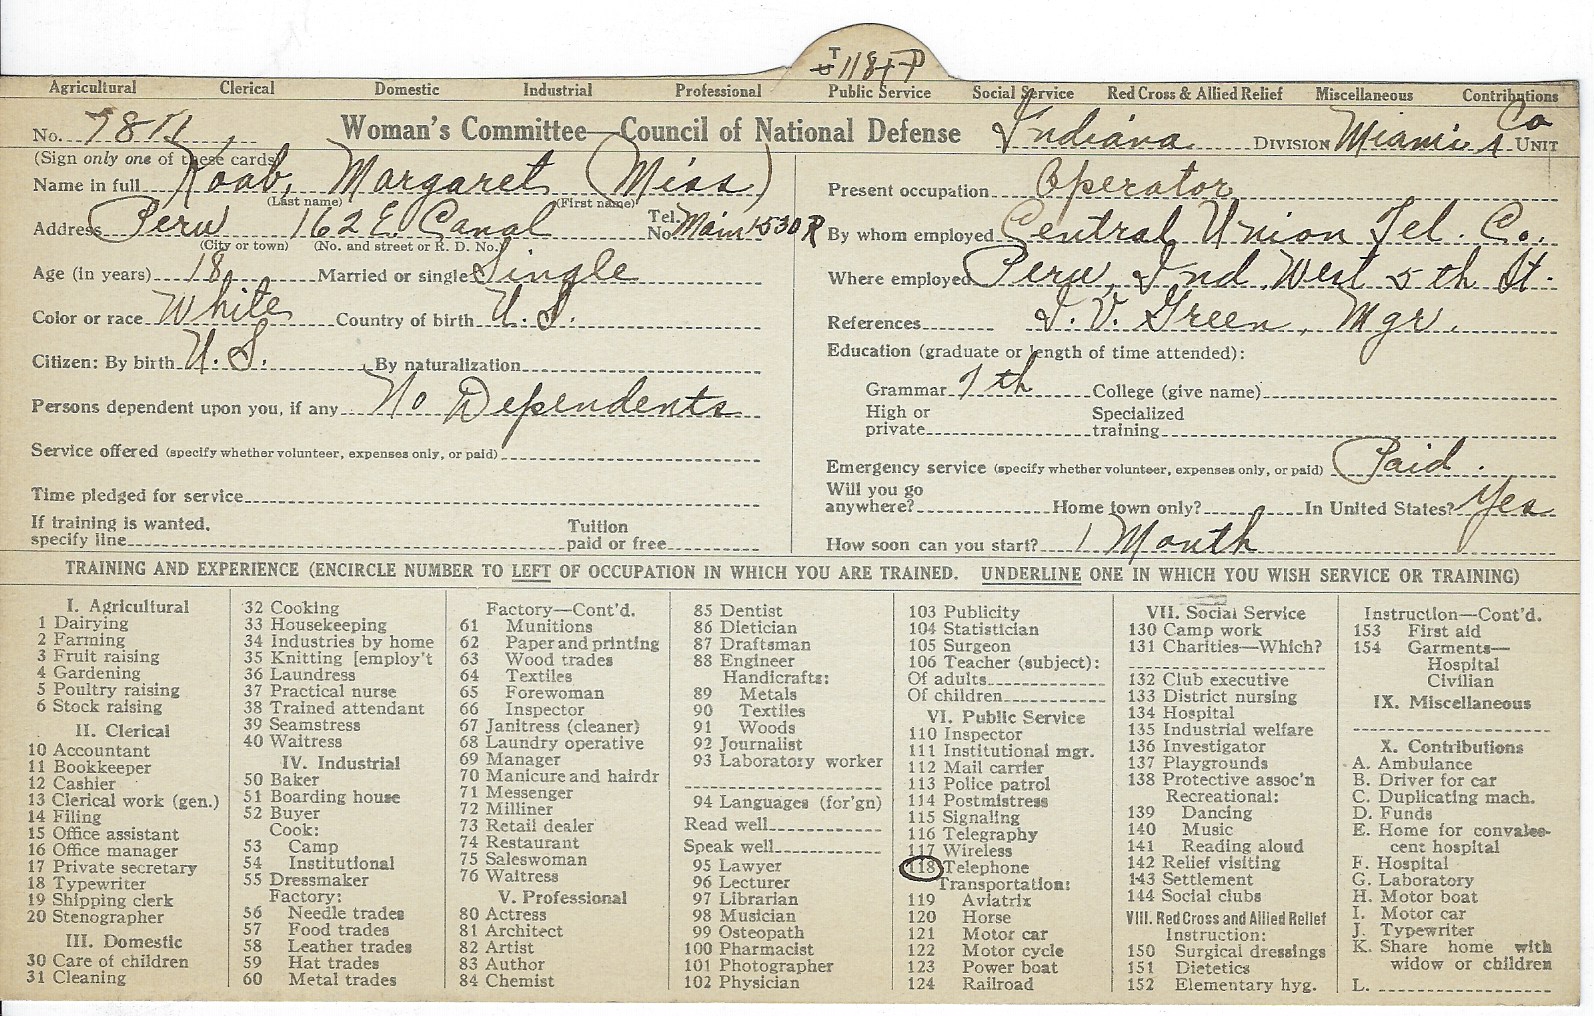 T 118 + P
Agricultural Clerical Domestic Industrial Professional Public Service Social Service Red Cross & Allied Relief Miscellaneous Contributions
No. Woman's Committee—Council of National Defense Indiana DIVISION Miami Co UNIT
(Sign only one of these cards)
Name in full Koab, Margaret (Miss)
(Last name) (First name)
Address Peru 162 E. Canal Tel. No. Main 1530 R
(City or town) (No. and street or R. D. No.)
Age (in years) 18 Married or single Single
Color or race White Country of birth U. S.
Citizen: By birth U. S. By naturalization
Persons dependent upon you, if any No Dependents
Service offered (specify whether volunteer, expenses only, or paid)
Time pledged for service
If training is wanted, specify line Tuition paid or free
Present occupation Operator
By whom employed Central Union Tel. Co.
Where employed Peru, Ind. West 5th St.
References I. V. Green, Mgr.
Education (graduate or length of time attended):
Grammar 7th College (give name)
High or private Specialized training
Emergency service (specify whether volunteer, expenses only, or paid) Paid.
Will you go anywhere? Home town only? In United States? Yes
How soon can you start? 1 Month
TRAINING AND EXPERIENCE (ENCIRCLE NUMBER TO LEFT OF OCCUPATION IN WHICH YOU ARE TRAINED. UNDERLINE ONE IN WHICH YOU WISH SERVICE OR TRAINING)
I. Agricultural
1 Dairying
2 Farming
3 Fruit raising
4 Gardening
5 Poultry raising
6 Stock raising
II. Clerical
10 Accountant
11 Bookkeeper
12 Cashier
13 Clerical work (gen.)
14 Filing
15 Office assistant
16 Office manager
17 Private secretary
18 Typewriter
19 Shipping clerk
20 Stenographer
III. Domestic
30 Care of children
31 Cleaning
32 Cooking
33 Housekeeping
34 Industries by home
35 Knitting [employ't
36 Laundress
37 Practical nurse
38 Trained attendant
39 Seamstress
40 Waitress
IV. Industrial
50 Baker
51 Boarding house
52 Buyer
Cook:
53 Camp
54 Institutional
55 Dressmaker
Factory:
56 Needle trades
57 Food trades
58 Leather trades
59 Hat trades
60 Metal trades
Factory—Cont'd.
61 Munitions
62 Paper and printing
63 Wood trades
64 Textiles
65 Forewoman
66 Inspector
67 Janitress (cleaner)
68 Laundry operative
69 Manager
70 Manicure and hairdr
71 Messenger
72 Milliner
73 Retail dealer
74 Restaurant
75 Saleswoman
76 Waitress
V. Professional
80 Actress
81 Architect
82 Artist
83 Author
84 Chemist
85 Dentist
86 Dietician
87 Draftsman
88 Engineer
Handicrafts:
89 Metals
90 Textiles
91 Woods
92 Journalist
93 Laboratory worker
94 Languages (for'gn)
Read well
Speak well
95 Lawyer
96 Lecturer
97 Librarian
98 Musician
99 Osteopath
100 Pharmacist
101 Photographer
102 Physician
103 Publicity
104 Statistician
105 Surgeon
106 Teacher (subject):
Of adults
Of children
VI. Public Service
110 Inspector
111 Institutional mgr.
112 Mail carrier
113 Police patrol
114 Postmistress
115 Signaling
116 Telegraphy
117 Wireless
118 Telephone
Transportation:
119 Aviatrix
120 Horse
121 Motor car
122 Motor cycle
123 Power boat
124 Railroad
VII. Social Service
130 Camp work
131 Charities—Which?
132 Club executive
133 District nursing
134 Hospital
135 Industrial welfare
136 Investigator
137 Playgrounds
138 Protective assoc'n
Recreational:
139 Dancing
140 Music
141 Reading aloud
142 Relief visiting
143 Settlement
144 Social clubs
VIII. Red Cross and Allied Relief
Instruction:
150 Surgical dressings
151 Dietetics
152 Elementary hyg.
Instruction—Cont'd.
153 First aid
154 Garments—
Hospital
Civilian
IX. Miscellaneous
X. Contributions
A. Ambulance
B. Driver for car
C. Duplicating mach.
D. Funds
E. Home for convales-
cent hospital
F. Hospital
G. Laboratory
H. Motor boat
I. Motor car
J. Typewriter
K. Share home with
widow or children
L.